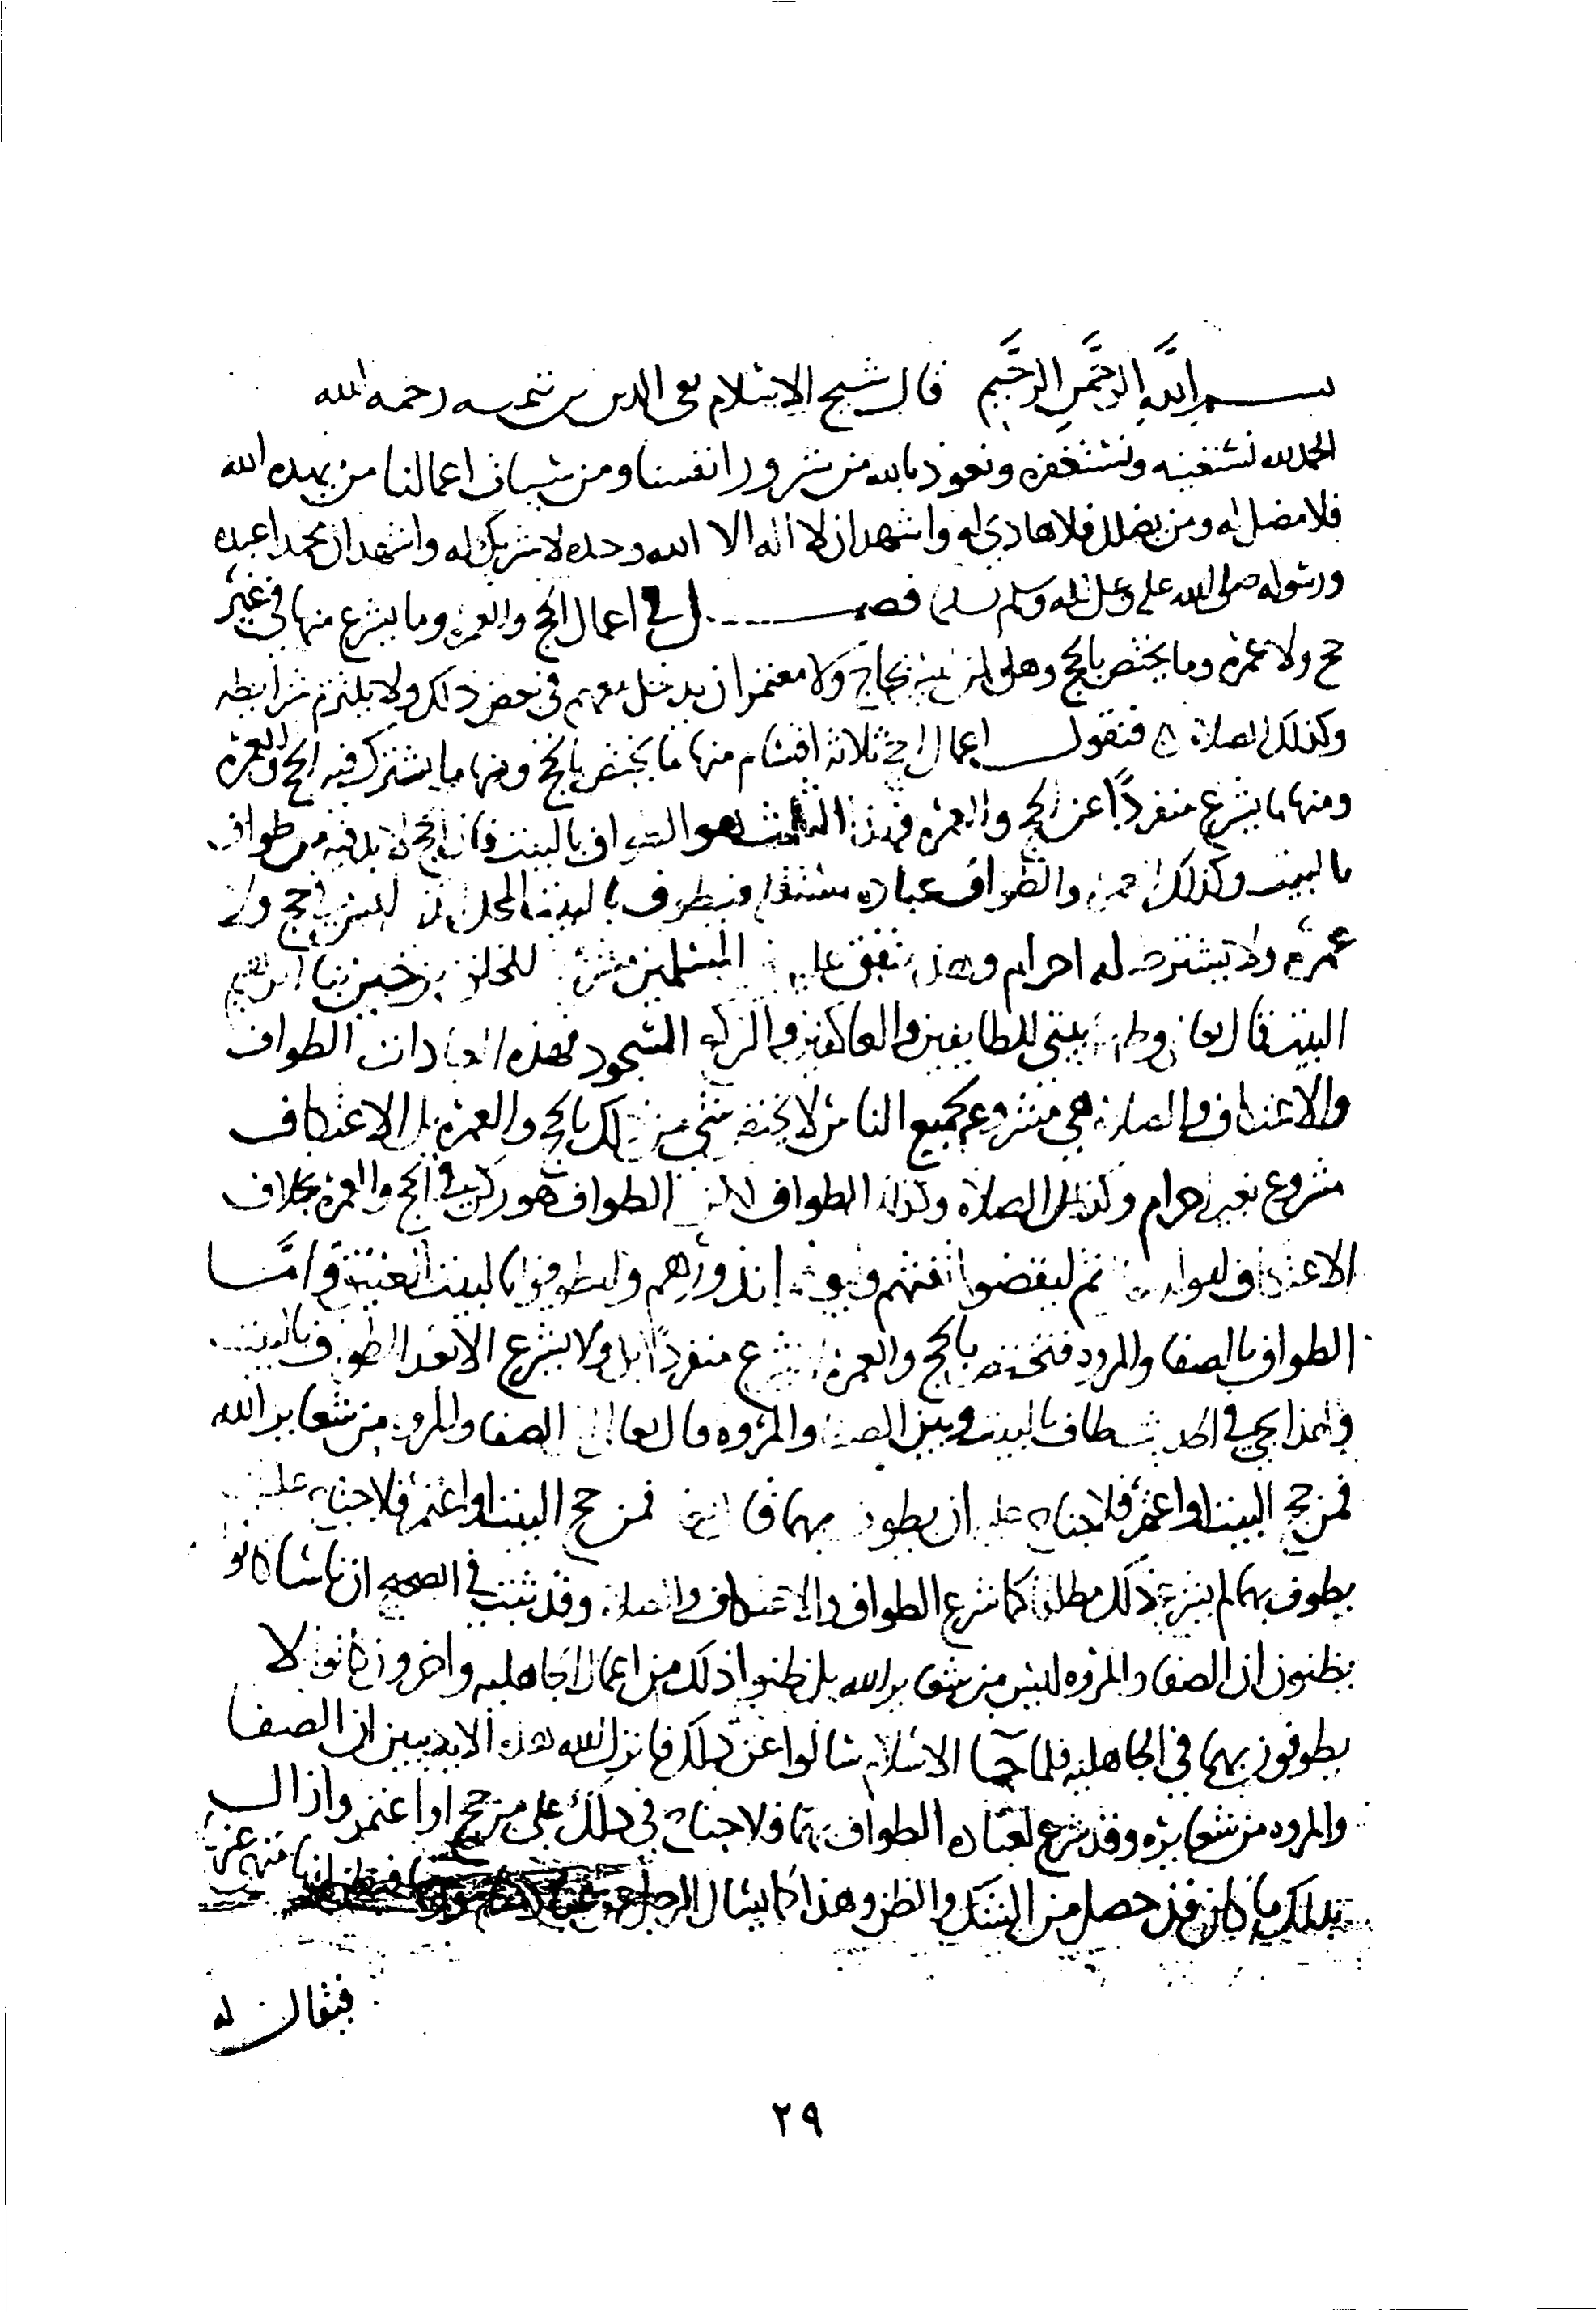 بسم الله الرحمن الرحيم قال شيخ الاسلام تقي الدين بن تيميه رحمه الله
الحمد لله نستعينه ونستغفره ونعوذ بالله من شرور انفسنا ومن سيات اعمالنا من يهده الله
فلا مضل له ومن يضلل فلا هادي له واشهد ان لا اله الا الله وحده لا شريك له واشهد ان محمدا عبده
ورسوله صلى الله عليه وعلى اله وسلم تسليما فصل في اعمال الحج والعمرة وما يشرع منها في غير
حج ولا عمرة وما يختص بالحج وهل لمن ليس بحاج ولا معتمر ان يدخل معهم في بعض ذلك ولا يلتزم شرايطه
وكذلك الصلاة فنقول اعمال الحج ثلاثة اقسام منها ما يختص بالحج ومنها ما يشترك فيه الحج والعمرة
ومنها ما يشرع منفردًا عن الحج والعمرة فهذا الثالث هو الطواف بالبيت فان الحج لا بد فيه من طواف
بالبيت وكذلك العمرة والطواف عبادة مستقلة فيطوف بالبيت الحلال الذي ليس في حج ولا
عمرة ولا يشترط له احرام وهذا متفق عليه بين المسلمين من حين بنا ابراهيم
البيت قال تعالى وطهر بيتي للطايفين والعاكفين والركع السجود فهذه العبادات الطواف
والاعتكاف والصلاة هي مشروعة لجميع الناس لا يختص شي من ذلك بالحج والعمرة بل الاعتكاف
مشروع بغير احرام وكذلك الصلاة وكذلك الطواف لكن الطواف هو ركن في الحج والعمرة بخلاف
الاعتكاف لقوله ثم ليقضوا تفثهم وليوفوا نذورهم وليطوفوا بالبيت العتيق وامَّا
الطواف بالصفا والمروة فتختص بالحج والعمرة لا يشرع منفردًا بل ولا يشرع الا بعد الطواف بالبيت
ولهذا يجي في الحديث طاف بالبيت وبين الصفا والمروه قال تعالى ان الصفا والمروة من شعاير الله
فمن حج البيت او اعتمر فلا جناح عليه ان يطوف بهما قال فمن حج البيت او اعتمر فلا جناح عليه
يطوف بهما لم يشرع ذلك مطلقا كما شرع الطواف والاعتكاف والصلاة وقد ثبت في الصحيح ان ناسا كانوا
يظنون ان الصفا والمروه ليس من شعاير الله بل ظنوا ذلك من اعمال الجاهليه واخرون كانوا لا
يطوفون بهما في الجاهليه فلما جا الاسلام سالوا عن ذلك فانزل الله هذه الاية يبين ان الصفا
والمروه من شعايره وقد شرع لعباده الطواف بهما فلا جناح في ذلك على من حج او اعتمر وازال
بذلك ما كان قد حصل من الشك والظن وهذا كما يسال الرجل
فيقال له
٢٩